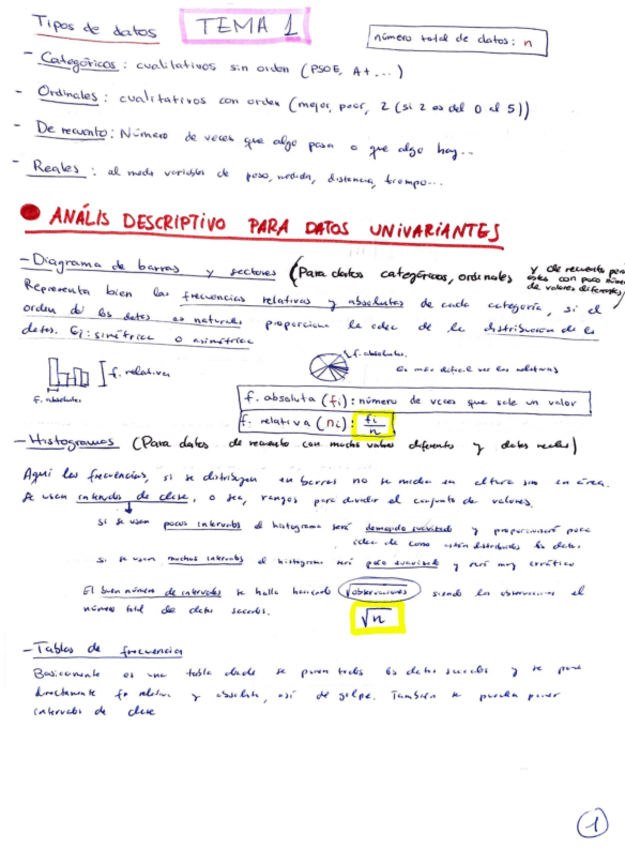 Tipos de datos
TEMA 1
número total de datos: n
- Categóricos: cualitativos sin orden (PSOE, A+...)
- Ordinales: cualitativos con orden (mejor, peor, 2 (si 2 es del 0 al 5))
- De recuento: Número de veces que algo pasa o que algo hay...
- Reales: al medir variables de peso, medida, distancia, tiempo...
ANÁLIS DESCRIPTIVO PARA DATOS UNIVARIANTES
- Diagrama de barras y sectores (Para datos categóricos, ordinales y de recuento pero estos con poco número de valores diferentes)
Representa bien las frecuencias relativas y absolutas de cada categoría, si el
orden de los datos es natural proporciona la idea de la distribución de los
datos. Ej: simétrica o asimétrica
f. relativa
f. absoluta
f. absoluta.
Es más difícil ver las relativas
f. absoluta (fi): número de veces que sale un valor
f. relativa (ni): fi/n
- Histogramas (Para datos de recuento con muchos valores diferentes y datos reales)
Aquí las frecuencias, si se distribuyen en barras no se miden en altura sino en área.
Se usan intervalos de clase, o sea, rangos para dividir el conjunto de valores.
Si se usan pocos intervalos el histograma será demasiado suavizado y proporcionará poca
idea de como están distribuidos los datos
Si se usan muchos intervalos el histograma será poco suavizado y será muy errático
El buen número de intervalos se halla haciendo √observaciones siendo las observaciones el
número total de datos sacados.
√n
- Tablas de frecuencia
Basicamente es una tabla donde se ponen todos los datos sacados y se pone
directamente fr relativa y absoluta, así de golpe. También se pueden poner
intervalos de clase
1